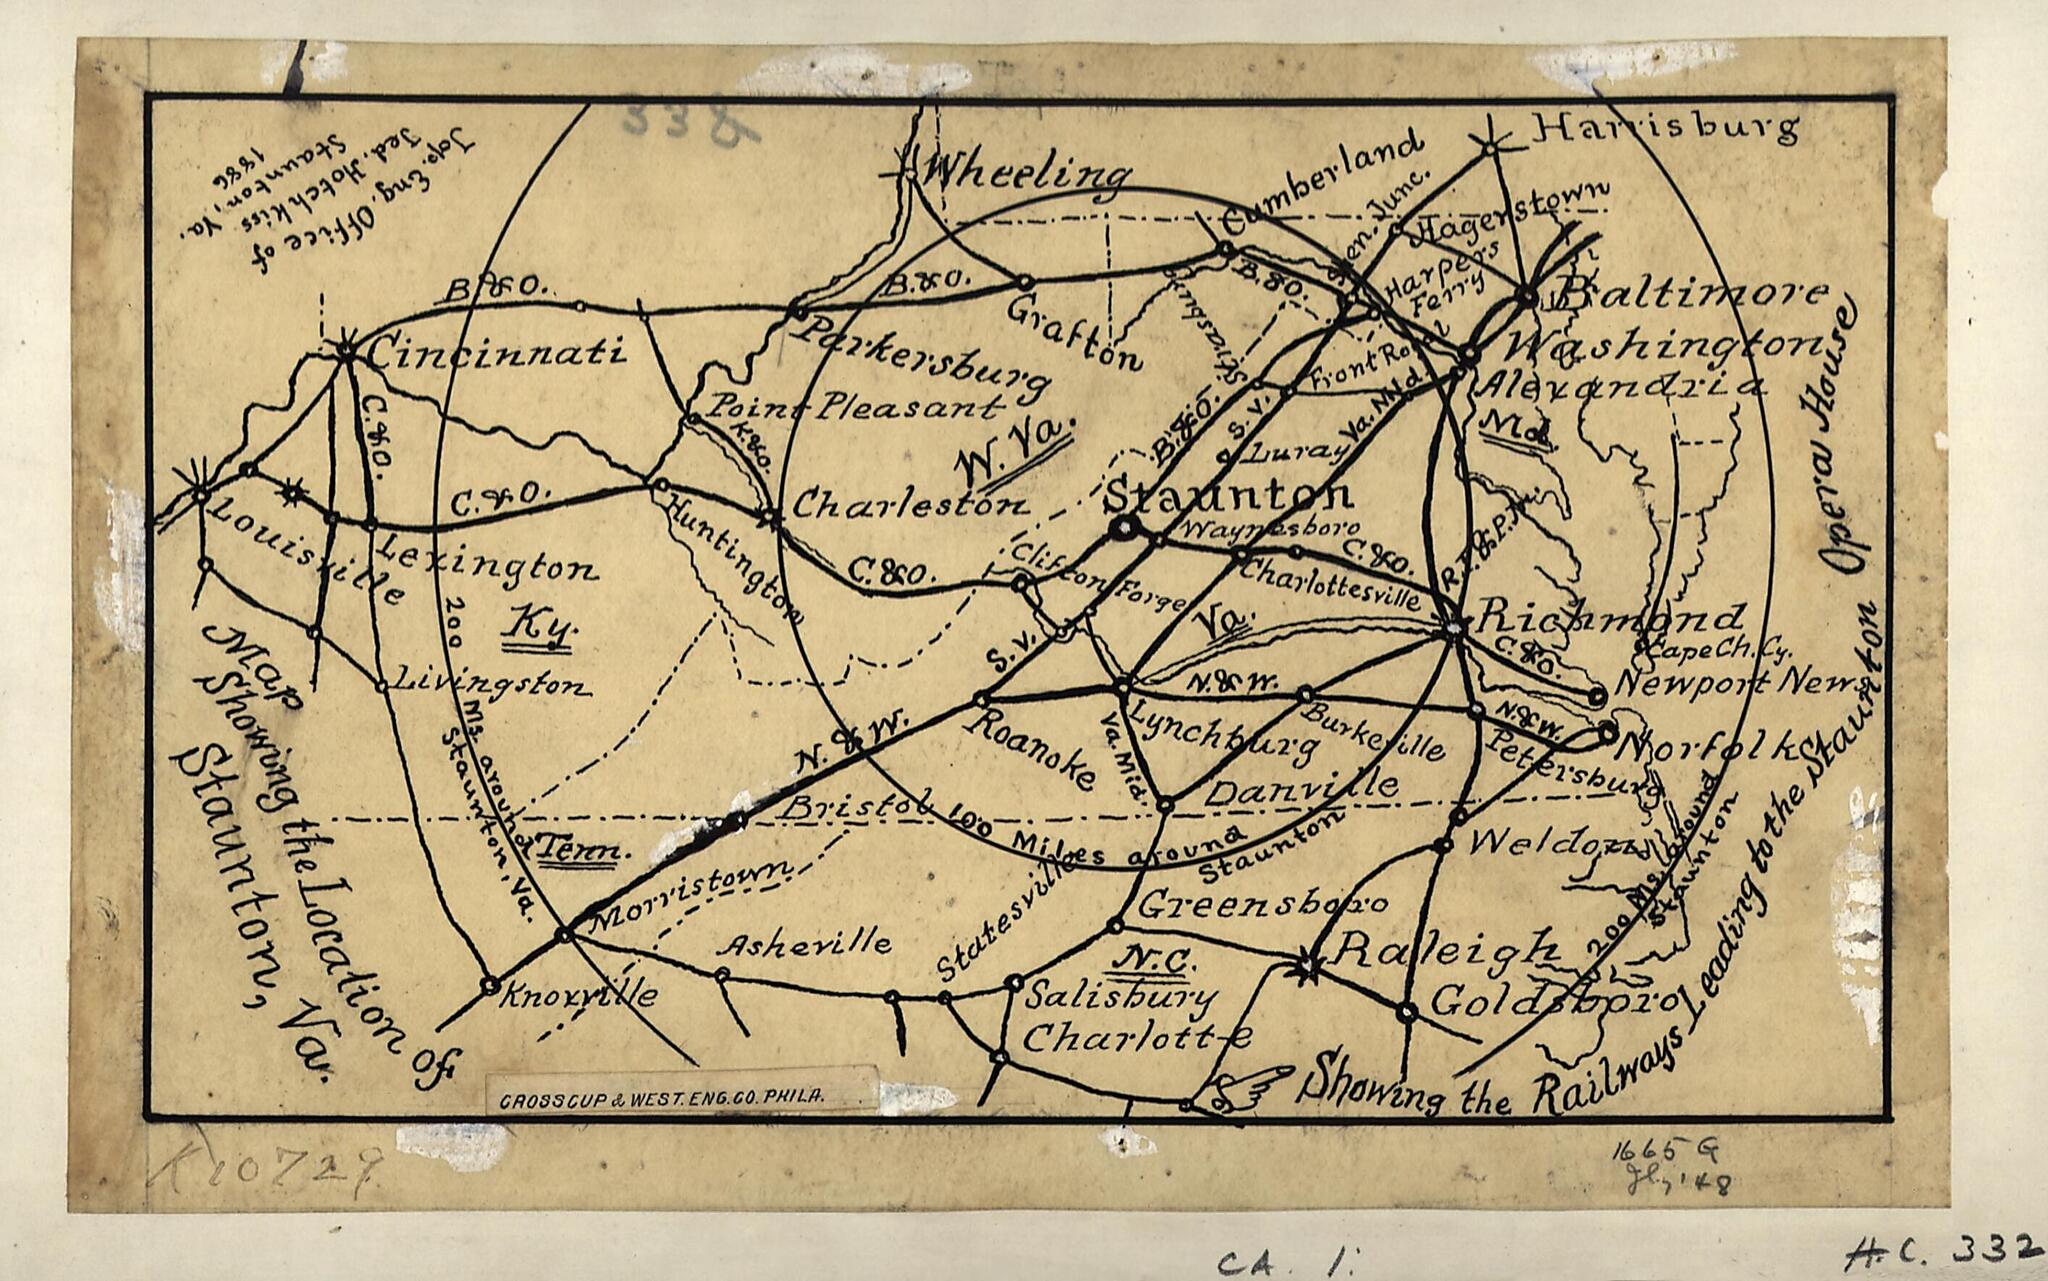 338
Top. Eng. Office of
Jed. Hotchkiss
Staunton, Va.
1886
Harrisburg
Wheeling
Cumberland
Shen. Junc.
Hagerstown
Harpers
Ferry
B.&O.
B.&O.
B.&O.
Grafton
Baltimore
Cincinnati
Parkersburg
Strasburg
Front Royal
Washington
Alexandria
Point Pleasant
K.&O.
C.&O.
W. Va.
B.&O.
S.V.
Va. Mid.
Luray
Md.
Louisville
C.&O.
Charleston
Staunton
Waynesboro
C.&O.
Huntington
Lexington
C.&O.
Clifton Forge
Charlottesville
R.F.&P.
Ky.
200 Ms. around
Staunton, Va.
Va.
Richmond
C.&O.
Cape Ch. Cy.
S.V.
Livingston
Newport News
N.&W.
Roanoke
Lynchburg
N.&W.
Burkeville
N.&W.
Petersburg
Norfolk
Va. Mid.
Danville
Bristol
100 Miles around
Staunton
Weldon
200 Ms. around
Staunton
Tenn.
Morristown
Statesville
Greensboro
Raleigh
Asheville
N.C.
Knoxville
Salisbury
Goldsboro
Charlotte
Map
Showing the Location of
Staunton, Va.
Showing the Railways Leading to the Staunton Opera House
CROSSCUP & WEST. ENG. CO. PHILA.
K10729
1665 G
'48
CA. 1.
H.C. 332